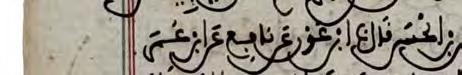 بن الحسن قال نا ابن عون عن نافع عن ابن عمر